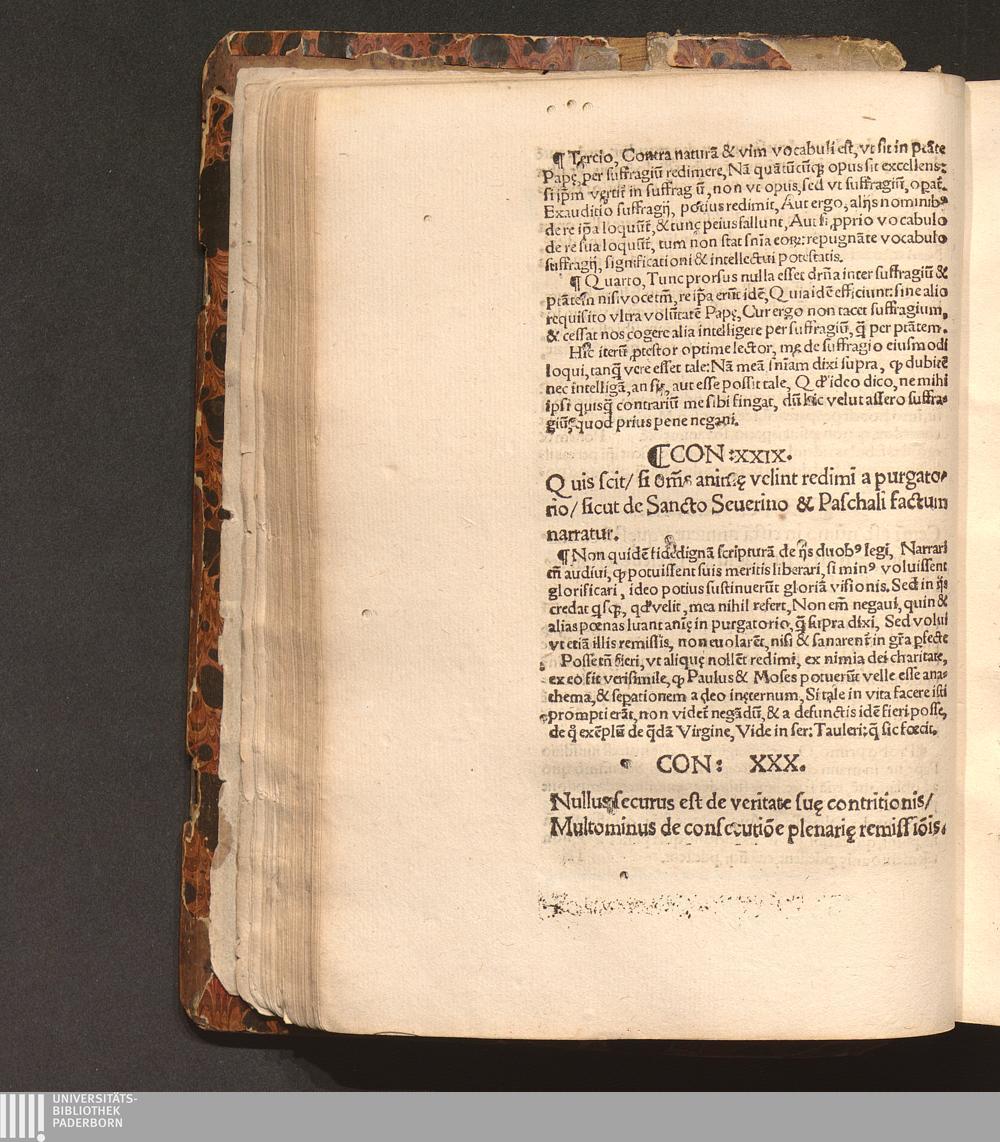 ¶ Tercio, Contra naturā & vim vocabuli est, vt sit in ptāte
Papę, per suffragiū redimere, Nā quātūcūqꝫ opus sit excellens:
si ip̄m vertit̄ in suffragiū, non vt opus, sed vt suffragiū, opat̄.
Exauditio suffragij, potius redimit, Aut ergo, alijs nominibꝰ
de re ip̄a loquūt̄, & tunc peius fallunt, Aut si ꝓprio vocabulo
de re sua loquūt̄, tum non stat sn̄ia eoꝝ: repugnāte vocabulo
suffragij, significationi & intellectui potestatis.
¶ Quarto, Tunc prorsus nulla esset dr̄na inter suffragiū &
ptātem nisi vocetm̄, re ip̄a erūt idē, Quia idē efficiunt: sine alio
requisito vltra volūtatē Papę, Cur ergo non tacet suffragium,
& cessat nos cogere alia intelligere per suffragiū, q̄ per ptātem.
Hic iterū ꝓtestor optime lector, me de suffragio eiusmodi
loqui, tanq̄ vere esset tale: Nā meā sn̄iam dixi supra, ꝙ dubitē
nec intelligā, an sit, aut esse possit tale, Qđ ideo dico, ne mihi
ipsi quisq̄ contrariū me sibi fingat, dū hic velut assero suffra-
giū, quod prius pene negaui.
¶CON: XXIX.
Quis scit/ si om̄s animę velint redimi a purgato-
rio/ sicut de Sancto Seuerino & Paschali factum
narratur.
¶ Non quidē fide dignā scripturā de ijs duobꝰ legi, Narrari
tn̄ audiui, ꝙ potuissent suis meritis liberari, si minꝰ voluissent
glorificari, ideo potius sustinuerūt gloriā visionis. Sed in ijs
credat qsqꝫ, qđ velit, mea nihil refert, Non em̄ negaui, quin &
alias pœnas luant anię in purgatorio, q̄ supra dixi, Sed volui
vt etiā illis remissis, non euolarēt, nisi & sanarent̄ in gr̄a ꝑfecte
Posse tn̄ fieri, vt aliquę nollēt redimi, ex nimia dei charitate,
ex eo fit verisimile, ꝙ Paulus & Moses potuerūt velle esse ana-
thema, & sepationem a deo inęternum, Si tale in vita facere isti
prompti erāt, non videt̄ negādū, & a defunctis idē fieri posse,
de q̄ exēplū de q̄dā Virgine, Vide in ser: Tauleri: q̄ sic fœcit.
CON: XXX.
Nullus securus est de veritate suę contritionis/
Multominus de consecutiōe plenarię remissiōis.
UNIVERSITÄTS-
BIBLIOTHEK
PADERBORN